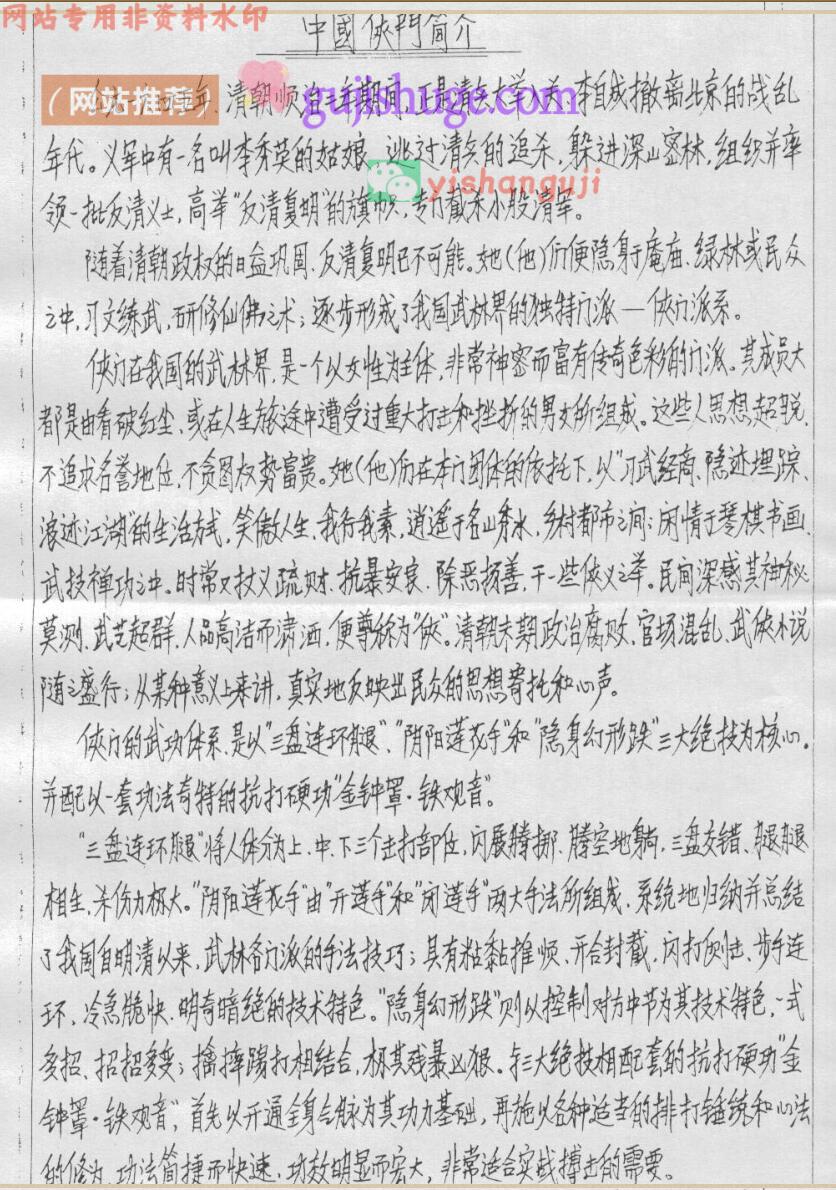 网站专用非资料水印
中國侠門简介
（网站推荐）
gujishuge.com
yishanguji
年、清朝顺治三年期间，正是清兵大举入关、李自成撤离北京的战乱
年代。义军中有一名叫李秀英的姑娘，逃过清兵的追杀，躲进深山密林，组织并率
领一批反清义士，高举“反清复明”的旗帜，专门截杀小股清军。
随着清朝政权的日益巩固，反清复明已不可能。她(他)们便隐身于庵庙、绿林或民众
之中，习文练武，研修仙佛之术；逐步形成了我国武林界的独特门派—侠门派系。
侠门在我国的武林界，是一个以女性为主体，非常神密而富有传奇色彩的门派。其成员大
都是由看破红尘、或在人生旅途中遭受过重大打击和挫折的男女所组成。这些人思想超脱、
不追求名誉地位，不贪图权势富贵。她(他)们在本门团体的依托下，以“习武经商、隐迹埋踪、
浪迹江湖”的生活方式，笑傲人生、我行我素，逍遥于名山秀水，乡村都市之间；闲情于琴棋书画、
武技禅功之中。时常又杖义疏财、抗暴安良、除恶扬善，干一些侠义之举。民间深感其神秘
莫测、武艺超群、人品高洁而潇洒，便尊称为“侠”。清朝末期政治腐败、官场混乱，武侠小说
随之盛行；从某种意义上来讲，真实地反映出民众的思想寄托和心声。
侠门的武功体系，是以“三盘连环腿”、“阴阳莲花手”和“隐身幻形跌”三大绝技为核心。
并配以一套功法奇特的抗打硬功“金钟罩·铁观音”。
“三盘连环腿”将人体分为上、中、下三个击打部位，闪展腾挪、腾空地躺，三盘交错、腿腿
相生，杀伤力极大。“阴阳莲花手”由“开莲手”和“闭莲手”两大手法所组成，系统地归纳并总结
了我国自明清以来，武林各门派的手法技巧；具有粘黏推顺、开合封截，闪打侧击、步手连
环、冷急脆快、明奇暗绝的技术特色。“隐身幻形跌”则以控制对方中节为其技术特色，一式
多招、招招多变；擒摔踢打相结合，极其残暴凶狠。与三大绝技相配套的抗打硬功“金
钟罩·铁观音”，首先以开通全身气脉为其功力基础，再施以各种适当的排打锤练和心法
的修为，功法简捷而快速，功效明显而宏大，非常适合实战搏击的需要。